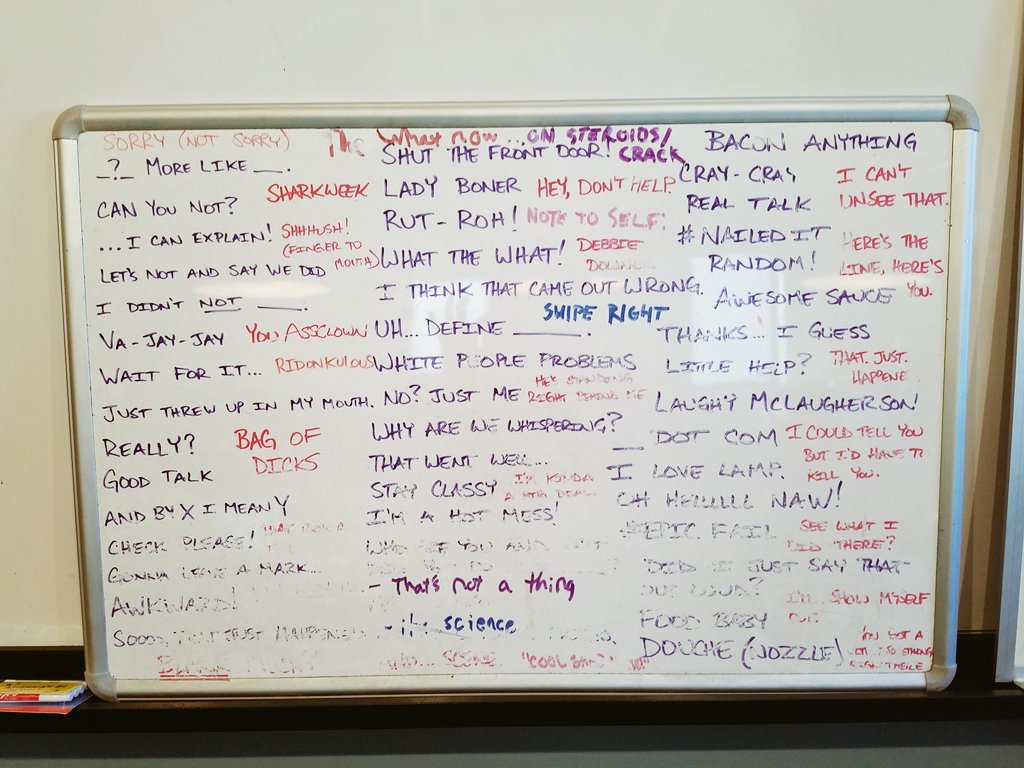 SORRY (NOT SORRY)
_?_ MORE LIKE ___.
SHARKWEEK
CAN YOU NOT?
...I CAN EXPLAIN!
SHHHUSH!
(FINGER TO
MOUTH)
LET'S NOT AND SAY WE DID
I DIDN'T NOT ___.
VA-JAY-JAY
YOU ASSCLOWN
WAIT FOR IT...
RIDONKULOUS
JUST THREW UP IN MY MOUTH.
REALLY?
BAG OF
DICKS
GOOD TALK
AND BY X I MEAN Y
CHECK PLEASE!
GONNA LEAVE A MARK...
AWKWARD!
SOOOO, THAT JUST HAPPENED
What now...ON STEROIDS/
CRACK
SHUT THE FRONT DOOR!
LADY BONER
HEY, DON'T HELP.
RUT-ROH!
NOTE TO SELF:
WHAT THE WHAT!
DEBBIE
DOWNER
I THINK THAT CAME OUT WRONG.
SWIPE RIGHT
UH... DEFINE ______.
WHITE PEOPLE PROBLEMS
NO? JUST ME
HE'S STANDING
RIGHT BEHIND ME
WHY ARE WE WHISPERING?
THAT WENT WELL...
STAY CLASSY
I'M KINDA
A BIG DEAL
I'M A HOT MESS!
WHO ARE YOU AND WHAT
- That's not a thing
- it's science
AND... SCENE.
BACON ANYTHING
CRAY-CRAY
I CAN'T
UNSEE THAT.
REAL TALK
#NAILED IT
HERE'S THE
LINE, HERE'S
YOU.
RANDOM!
AWESOME SAUCE
THANKS... I GUESS
LITTLE HELP?
THAT. JUST.
HAPPENE
LAUGHY MCLAUGHERSON!
__ DOT COM
I COULD TELL YOU
BUT I'D HAVE TO
KILL YOU.
I LOVE LAMP.
OH HELLLLLL NAW!
#EPIC FAIL
SEE WHAT I
DID THERE?
DID I JUST SAY THAT
OUT LOUD?
I'LL SHOW MYSELF
OUT.
FOOD BABY
DOUCHE (NOZZLE)
YOU GOT A